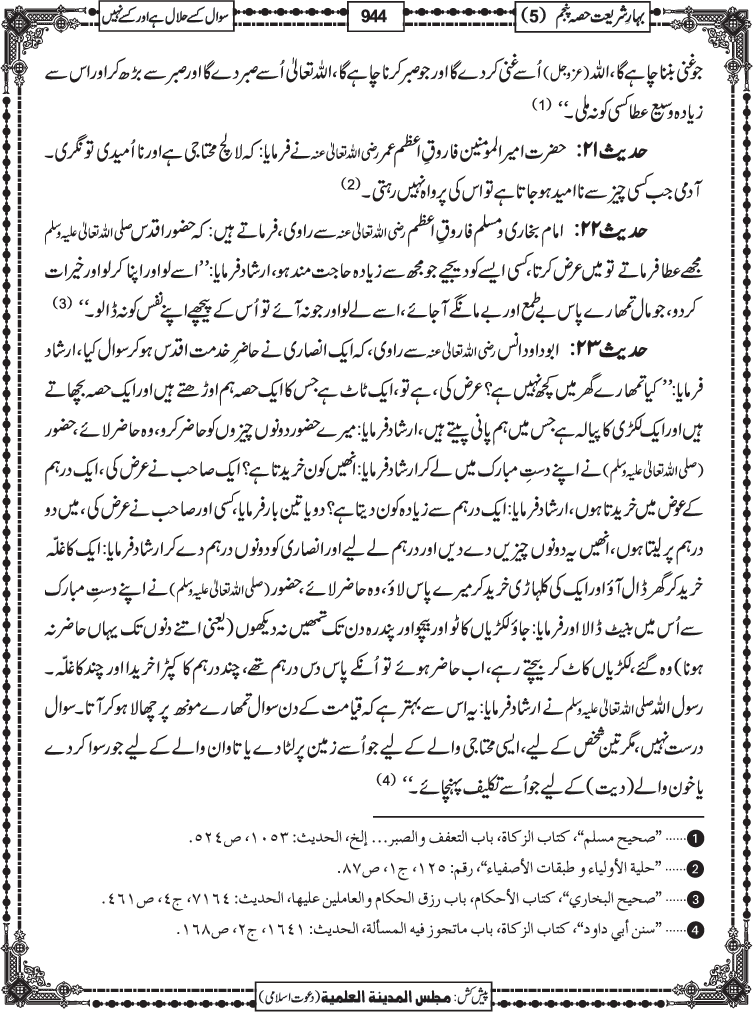 بہارِ شریعت حصہ پنجم (5)
944
سوال کسے حلال ہے اور کسے نہیں
جو غنی بننا چاہے گا، اللہ (عزوجل) اُسے غنی کر دے گا اور جو صبر کرنا چاہے گا، اللہ تعالیٰ اُسے صبر دے گا اور صبر سے بڑھ کر اور اس سے
زیادہ وسیع عطا کسی کو نہ ملی۔‘‘ (1)
حدیث ۲۱: حضرت امیر المومنین فاروقِ اعظم عمر رضی اللہ تعالیٰ عنہ نے فرمایا: کہ لالچ محتاجی ہے اور نا اُمیدی تونگری۔
آدمی جب کسی چیز سے نا امید ہو جاتا ہے تو اس کی پرواہ نہیں رہتی۔ (2)
حدیث ۲۲: امام بخاری و مسلم فاروقِ اعظم رضی اللہ تعالیٰ عنہ سے راوی، فرماتے ہیں: کہ حضور اقدس صلی اللہ تعالیٰ علیہ وسلم
مجھے عطا فرماتے تو میں عرض کرتا، کسی ایسے کو دیجیے جو مجھ سے زیادہ حاجت مند ہو، ارشاد فرمایا: ’’اسے لو اور اپنا کر لو اور خیرات
کر دو، جو مال تمھارے پاس بے طمع اور بے مانگے آجائے، اسے لے لو اور جو نہ آئے تو اُس کے پیچھے اپنے نفس کو نہ ڈالو۔‘‘ (3)
حدیث ۲۳: ابو داود انس رضی اللہ تعالیٰ عنہ سے راوی، کہ ایک انصاری نے حاضرِ خدمت اقدس ہو کر سوال کیا، ارشاد
فرمایا: ’’کیا تمھارے گھر میں کچھ نہیں ہے؟ عرض کی، ہے تو، ایک ٹاٹ ہے جس کا ایک حصہ ہم اوڑھتے ہیں اور ایک حصہ بچھاتے
ہیں اور ایک لکڑی کا پیالہ ہے جس میں ہم پانی پیتے ہیں، ارشاد فرمایا: میرے حضور دونوں چیزوں کو حاضر کرو، وہ حاضر لائے، حضور
(صلی اللہ تعالیٰ علیہ وسلم) نے اپنے دستِ مبارک میں لے کر ارشاد فرمایا: انھیں کون خریدتا ہے؟ ایک صاحب نے عرض کی، ایک درہم
کے عوض میں خریدتا ہوں، ارشاد فرمایا: ایک درہم سے زیادہ کون دیتا ہے؟ دو یا تین بار فرمایا، کسی اور صاحب نے عرض کی، میں دو
درہم پر لیتا ہوں، انھیں یہ دونوں چیزیں دے دیں اور درہم لے لیے اور انصاری کو دونوں درہم دے کر ارشاد فرمایا: ایک کا غلّہ
خرید کر گھر ڈال آؤ اور ایک کی کلہاڑی خرید کر میرے پاس لاؤ، وہ حاضر لائے، حضور (صلی اللہ تعالیٰ علیہ وسلم) نے اپنے دستِ مبارک
سے اُس میں بنیٹ ڈالا اور فرمایا: جاؤ لکڑیاں کاٹو اور بیچو اور پندرہ دن تک تمھیں نہ دیکھوں (یعنی اتنے دنوں تک یہاں حاضر نہ
ہونا) وہ گئے، لکڑیاں کاٹ کر بیچتے رہے، اب حاضر ہوئے تو اُنکے پاس دس درہم تھے، چند درہم کا کپڑا خریدا اور چند کا غلّہ۔
رسول اللہ صلی اللہ تعالیٰ علیہ وسلم نے ارشاد فرمایا: یہ اس سے بہتر ہے کہ قیامت کے دن سوال تمھارے مونھ پر چھالا ہو کر آتا۔ سوال
درست نہیں، مگر تین شخص کے لیے، ایسی محتاجی والے کے لیے جو اُسے زمین پر لٹا دے یا تاوان والے کے لیے جو رسوا کر دے
یا خون والے (دیت) کے لیے جو اُسے تکلیف پہنچائے۔‘‘ (4)
1 ...... ”صحيح مسلم“، كتاب الزكاة، باب التعفف والصبر... إلخ، الحديث: ١٠٥٣، ص٥٢٤.
2 ...... ”حلية الأولياء و طبقات الأصفياء“، رقم: ١٢٥، ج١، ص٨٧.
3 ...... ”صحيح البخاري“، كتاب الأحكام، باب رزق الحكام والعاملين عليها، الحديث: ٧١٦٤، ج٤، ص٤٦١.
4 ...... ”سنن أبي داود“، كتاب الزكاة، باب ماتجوز فيه المسألة، الحديث: ١٦٤١، ج٢، ص١٦٨.
پیش کش: مجلس المدينة العلمية (دعوت اسلامی)